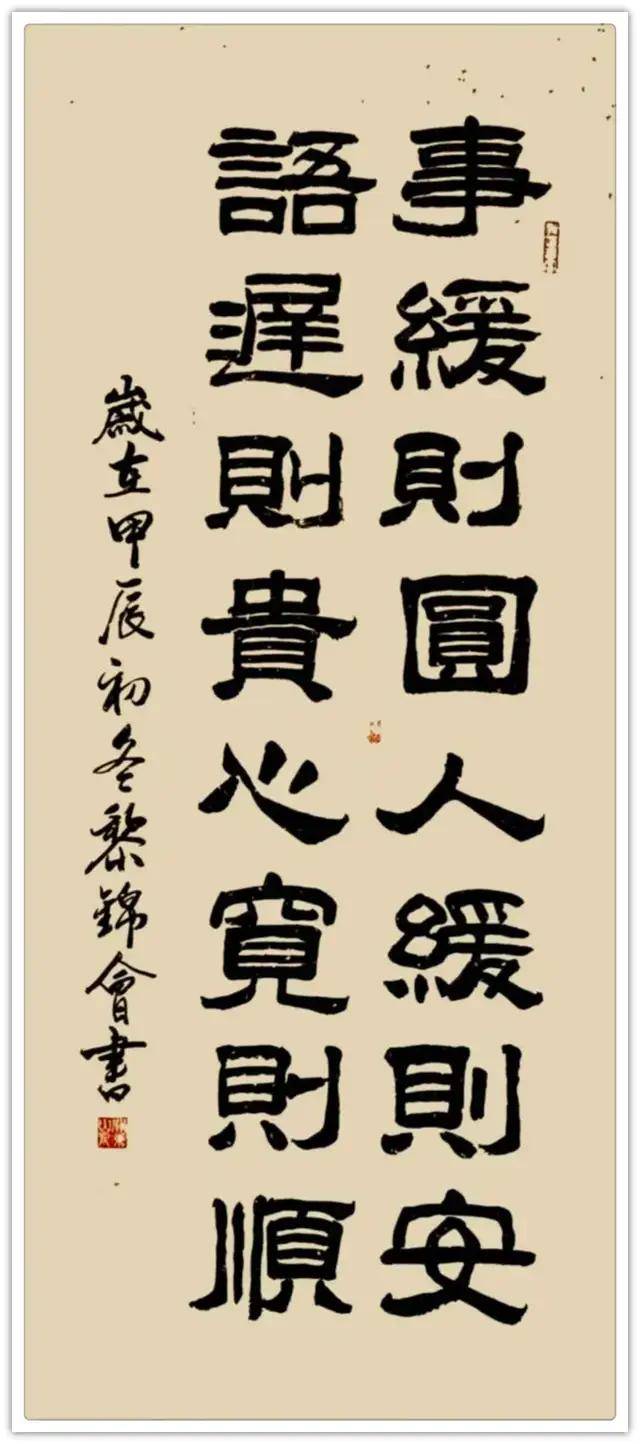 事緩則圓人緩則安
語遲則貴心寬則順
歲在甲辰初冬黎錦會書